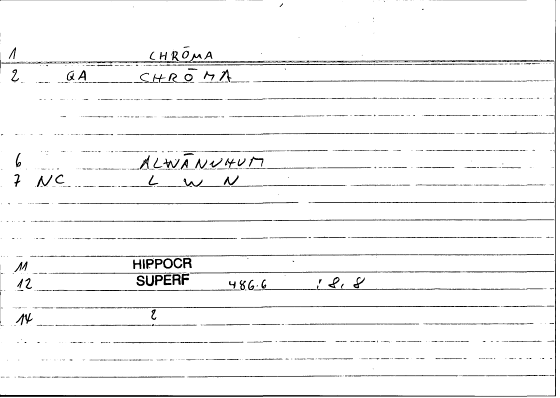 1 CHRŌMA
2 QA CHRŌMA
6 ALWĀNUHUM
7 NC L W N
11 HIPPOCR
12 SUPERF 486.6 : 8, 8
14 ?